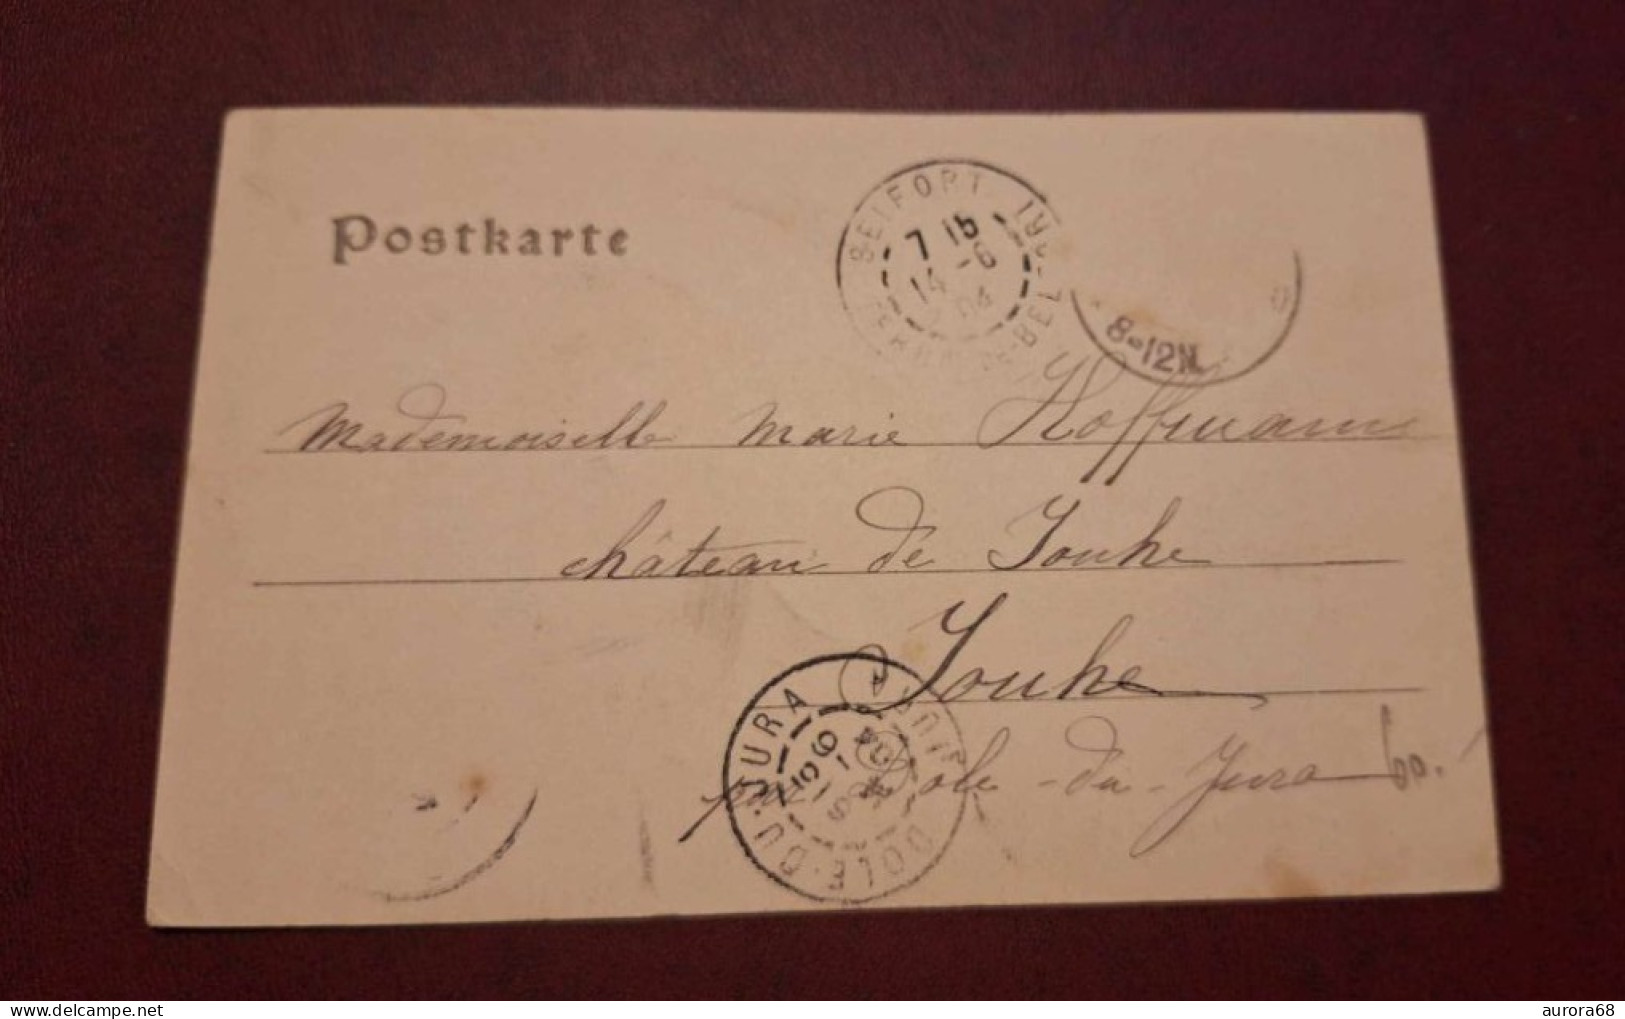 Postkarte
BELFORT
7 15
14 -6
04
BEL
8-12N
Mademoiselle Marie Hoffmann
château de Jouhe
Jouhe
par Dole-du-Jura
DOLE·DU·JURA
JURA
aurora68